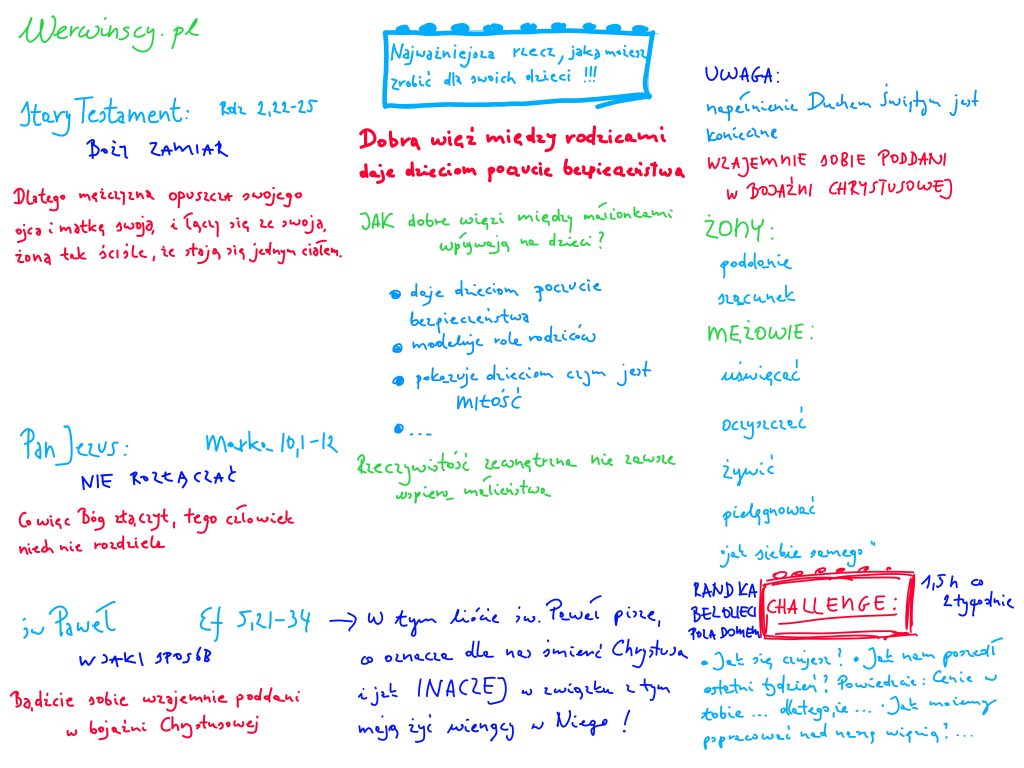 Werwinscy.pl
Stary Testament: Rdz 2,22-25
BOŻY ZAMIAR
Dlatego mężczyzna opuszcza swojego
ojca i matkę swoją, i łączy się ze swoją
żoną tak ściśle, że stają się jednym ciałem.
Pan Jezus: Marka 10,1-12
NIE ROZŁĄCZAĆ
Co więc Bóg złączył, tego człowiek
niech nie rozdziela
św Paweł Ef 5,21-34
W JAKI SPOSÓB
Bądźcie sobie wzajemnie poddani
w bojaźni Chrystusowej
Najważniejsza rzecz, jaką możesz
zrobić dla swoich dzieci !!!
Dobra więź między rodzicami
daje dzieciom poczucie bezpieczeństwa
JAK dobre więzi między małżonkami
wpływają na dzieci?
• daje dzieciom poczucie
bezpieczeństwa
• modeluje role rodziców
• pokazuje dzieciom czym jest
MIŁOŚĆ
• ...
Rzeczywistość zewnętrzna nie zawsze
wspiera małżeństwa
→ W tym liście św. Paweł pisze,
co oznacza dla nas śmierć Chrystusa
i jak INACZEJ w związku z tym
mają żyć wierzący w Niego!
UWAGA:
napełnienie Duchem Świętym jest
konieczne
WZAJEMNIE SOBIE PODDANI
W BOJAŹNI CHRYSTUSOWEJ
ŻONY:
poddanie
szacunek
MĘŻOWIE:
uświęcać
oczyszczać
żywić
pielęgnować
"jak siebie samego"
RANDKA
BEZ DZIECI
POZA DOMEM
CHALLENGE:
1,5h co
2 tygodnie
• Jak się czujesz? • Jak nam poszedł
ostatni tydzień? Powiedzcie: Cenię w
tobie ... dlatego, że ... • Jak możemy
popracować nad naszą więzią? ...